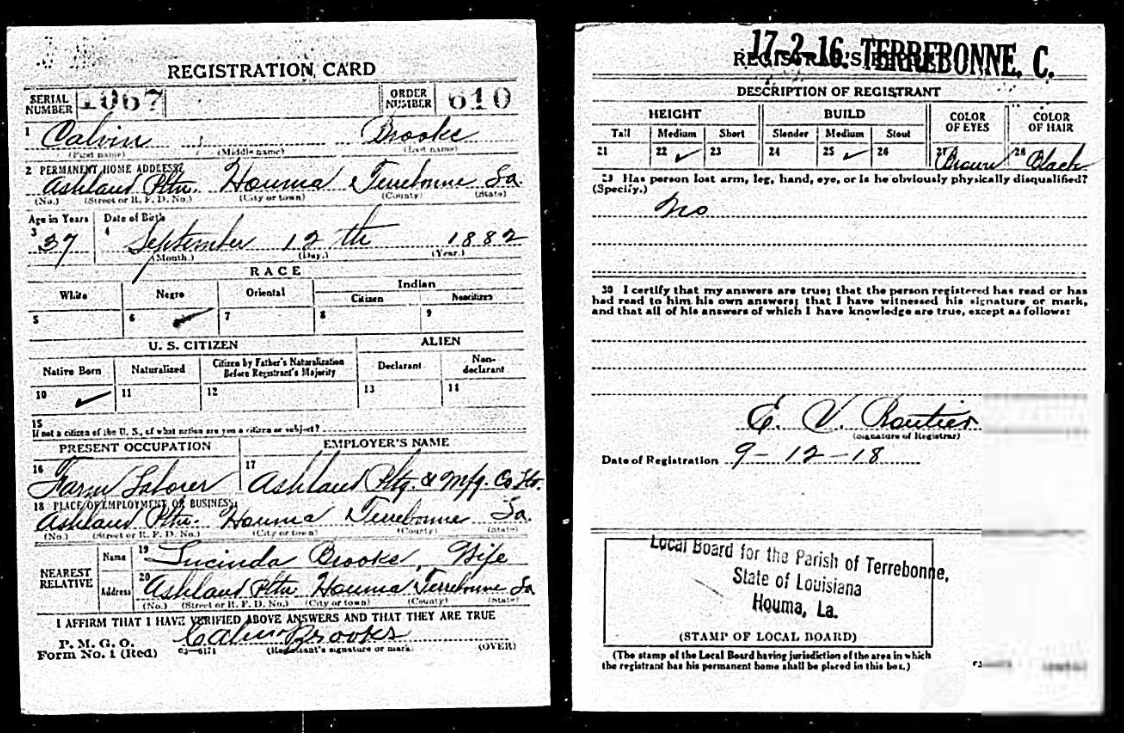 REGISTRATION CARD
SERIAL NUMBER 1067 ORDER NUMBER 610
1 Calvin Brooks
(First name) (Middle name) (Last name)
2 PERMANENT HOME ADDRESS:
Ashland Pltn. Houma Terrebonne La
(No.) (Street or R. F. D. No.) (City or town) (County) (State)
Age in Years Date of Birth
3 37 4 September 12th 1882
(Month.) (Day.) (Year.)
RACE
White Negro Oriental Indian
Citizen Noncitizen
5 6 ✓ 7 8 9
U. S. CITIZEN ALIEN
Native Born Naturalized Citizen by Father's Naturalization Before Registrant's Majority Declarant Non-declarant
10 ✓ 11 12 13 14
15
If not a citizen of the U. S., of what nation are you a citizen or subject?
PRESENT OCCUPATION EMPLOYER'S NAME
16 Farm Laborer 17 Ashland Pltg. & Mfg. Co
18 PLACE OF EMPLOYMENT OR BUSINESS:
Ashland Pltn. Houma Terrebonne La.
(No.) (Street or R. F. D. No.) (City or town) (County) (State)
NEAREST RELATIVE
Name 19 Lucinda Brooks, Wife
Address 20 Ashland Pltn Houma Terrebonne La
(No.) (Street or R. F. D. No.) (City or town) (County) (State)
I AFFIRM THAT I HAVE VERIFIED ABOVE ANSWERS AND THAT THEY ARE TRUE
P. M. G. O.
Form No. 1 (Red) Calvin Brooks
(Registrant's signature or mark) (OVER)
17-2-16. TERREBONNE. C.
REGISTRAR'S REPORT
DESCRIPTION OF REGISTRANT
HEIGHT BUILD COLOR OF EYES COLOR OF HAIR
Tall Medium Short Slender Medium Stout
21 22 ✓ 23 24 25 ✓ 26 27 Brown 28 Black
29 Has person lost arm, leg, hand, eye, or is he obviously physically disqualified?
(Specify.)
No
30 I certify that my answers are true; that the person registered has read or has
had read to him his own answers; that I have witnessed his signature or mark,
and that all of his answers of which I have knowledge are true, except as follows:
E. V.
(Signature of Registrar)
Date of Registration 9-12-18
Local Board for the Parish of Terrebonne,
State of Louisiana
Houma, La.
(STAMP OF LOCAL BOARD)
(The stamp of the Local Board having jurisdiction of the area in which
the registrant has his permanent home shall be placed in this box.)